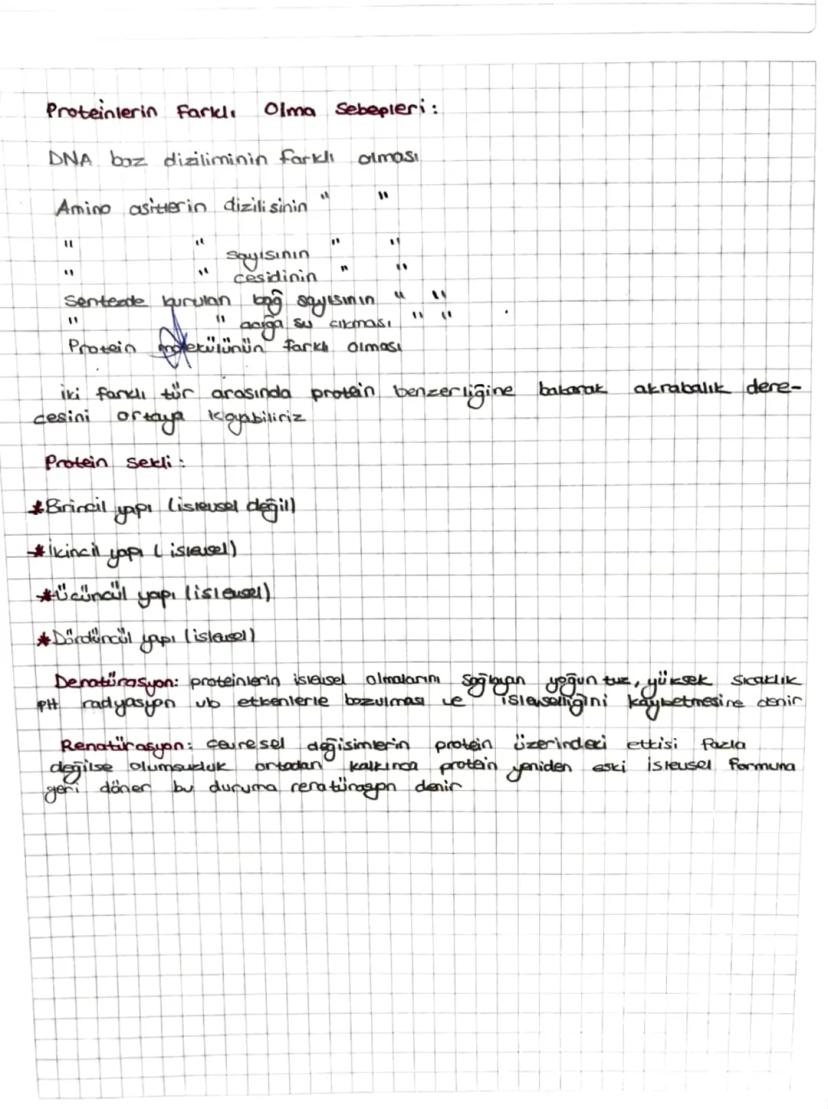 Proteinlerin Farklı Olma Sebepleri:
DNA baz diziliminin farklı olması
Amino asitlerin dizilisinin " "
" " sayısının " "
" " cesidinin " "
Sentezde kurulan bağ sayısının " "
" " açığa su cıkması " "
Protein molekülünün farklı olması
iki farklı tür arasında protein benzerliğine bakarak akrabalık dere-
cesini ortaya koyabiliriz
Protein sekli:
*Birincil yapı (islevsel değil)
*İkincil yapı (islevsel)
*Üçüncül yapı (islevsel)
*Dördüncül yapı (islevsel)
Denatürasyon: proteinlerin islevsel olmalarını sağlayan yoğun tuz, yüksek sıcaklık
PH radyasyon vb etkenlerle bozulması ve islevselliğini kaybetmesine denir
Renatürasyon: çevresel değisimlerin protein üzerindeki etkisi fazla
değilse olumsuzluk ortadan kalkınca protein yeniden eski islevsel formuna
geri döner bu duruma renatürasyon denir